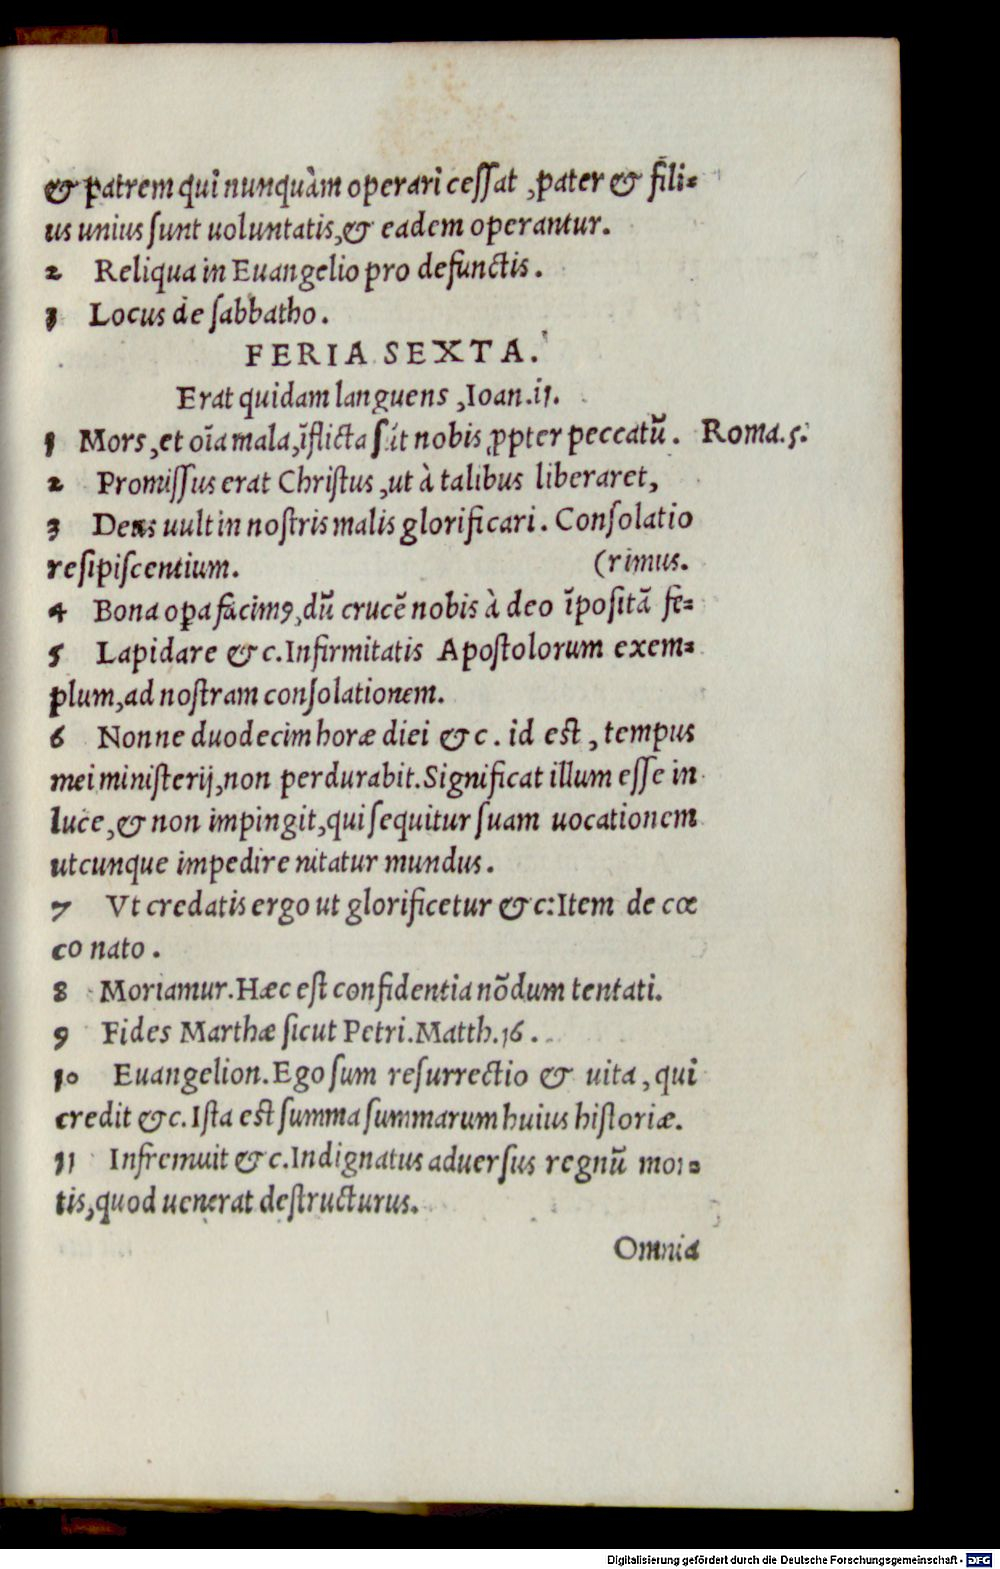 & patrem qui nunquàm operari cessat, pater & fili-
us unius sunt uoluntatis, & eadem operantur.
2 Reliqua in Euangelio pro defunctis.
3 Locus de sabbatho.
FERIA SEXTA.
Erat quidam languens, Ioan. 11.
1 Mors, et oīa mala, īflicta sīt nobis ꝓpter peccatū. Roma. 5.
2 Promissus erat Christus, ut à talibus liberaret,
3 Deus uult in nostris malis glorificari. Consolatio
resipiscentium. (rimus.
4 Bona oꝑa facimꝰ, dū crucē nobis à deo īpositā fe-
5 Lapidare &c. Infirmitatis Apostolorum exem-
plum, ad nostram consolationem.
6 Nonne duodecim horæ diei &c. id est, tempus
mei ministerij, non perdurabit. Significat illum esse in
luce, & non impingit, qui sequitur suam uocationem
utcunque impedire nitatur mundus.
7 Vt credatis ergo ut glorificetur &c: Item de cœ
co nato.
8 Moriamur. Hæc est confidentia nōdum tentati.
9 Fides Marthæ sicut Petri. Matth. 16.
10 Euangelion. Ego sum resurrectio & uita, qui
credit &c. Ista est summa summarum huius historiæ.
11 Infremuit &c. Indignatus aduersus regnū mor-
tis, quod uenerat destructurus.
Omnia
Digitalisierung gefördert durch die Deutsche Forschungsgemeinschaft - DFG